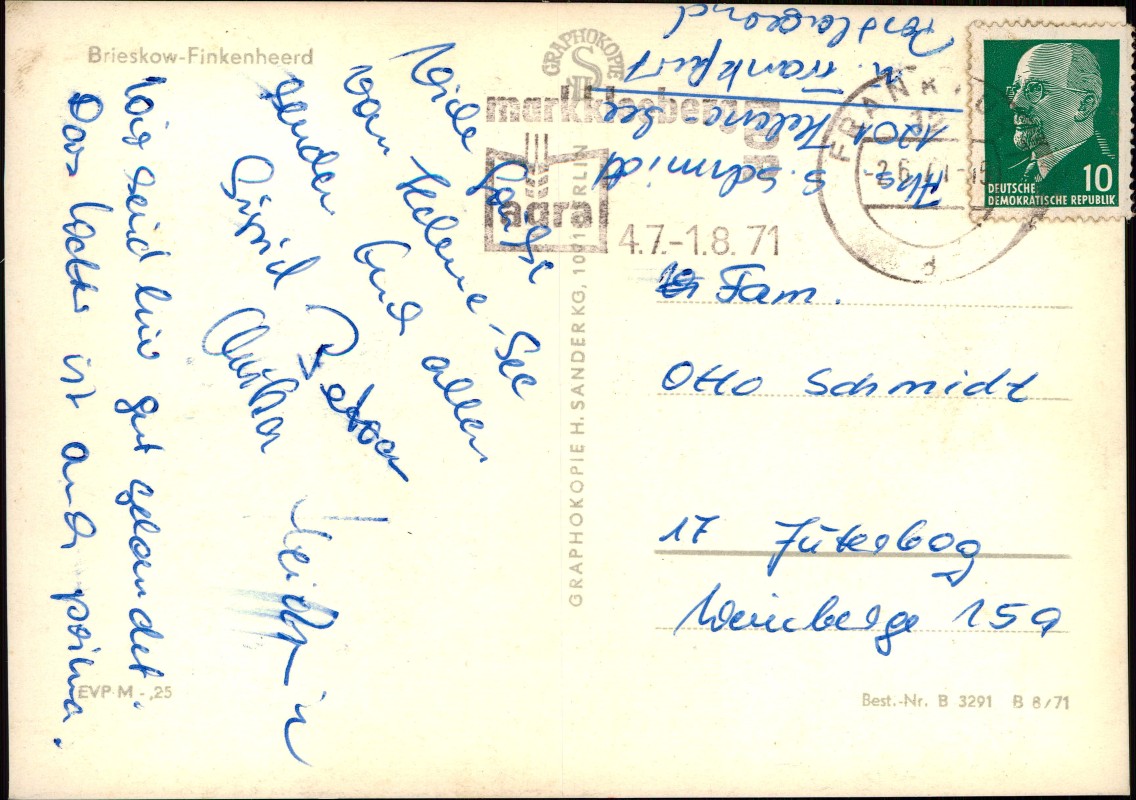 Brieskow-Finkenheerd
Viele Grüße
vom Helene-See
senden Euch allen
Sigrid
Wir sind hier gut gelandet.
Das Wetter ist auch prima.
EVP M -,25
GRAPHOKOPIE
markkleeberg
agra
4.7.-1.8.71
GRAPHOKOPIE H. SANDER KG, 1001 BERLIN
Abs. S. Schmidt
1201 Helene-See
b. Frankfurt
FRANKFURT
12
DEUTSCHE
DEMOKRATISCHE REPUBLIK
10
Fam.
Otto Schmidt
17 Jüterbog
Weinberge 15a
Best.-Nr. B 3291 B 8/71